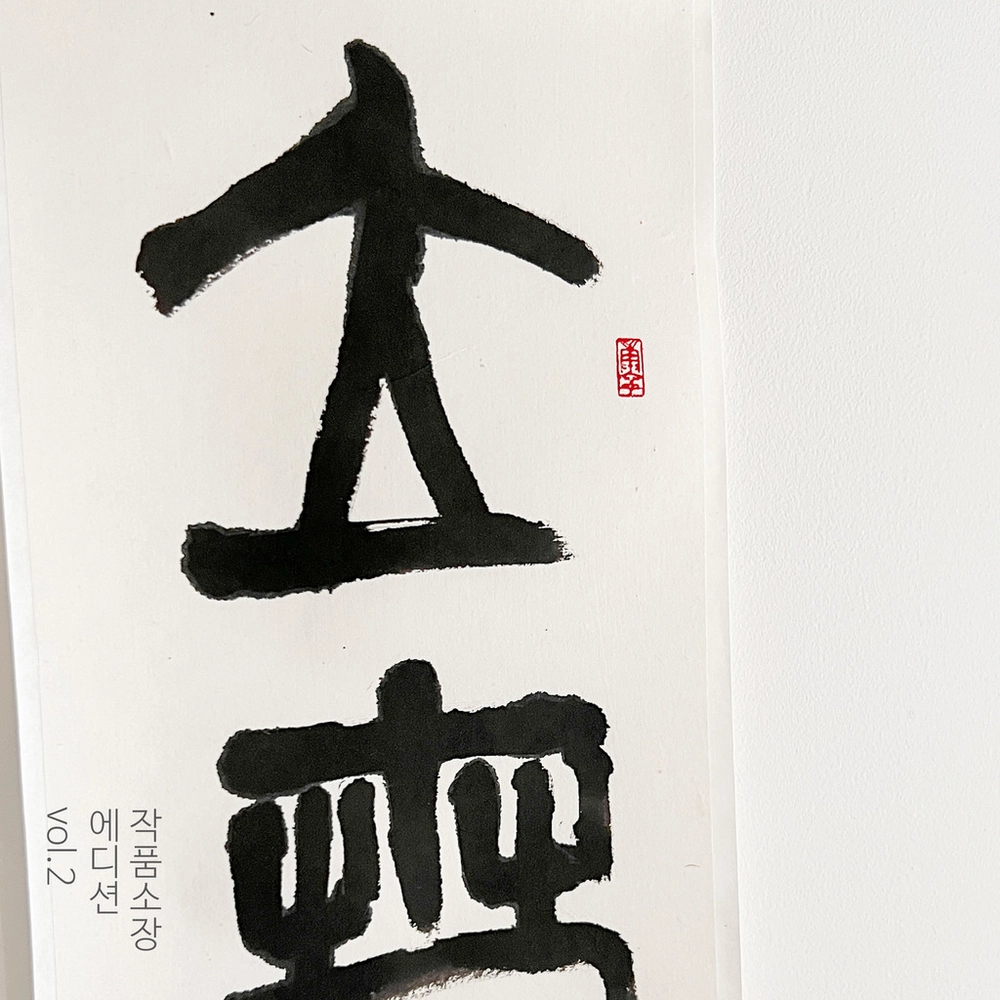 立
작품소장
에디션
vol.2